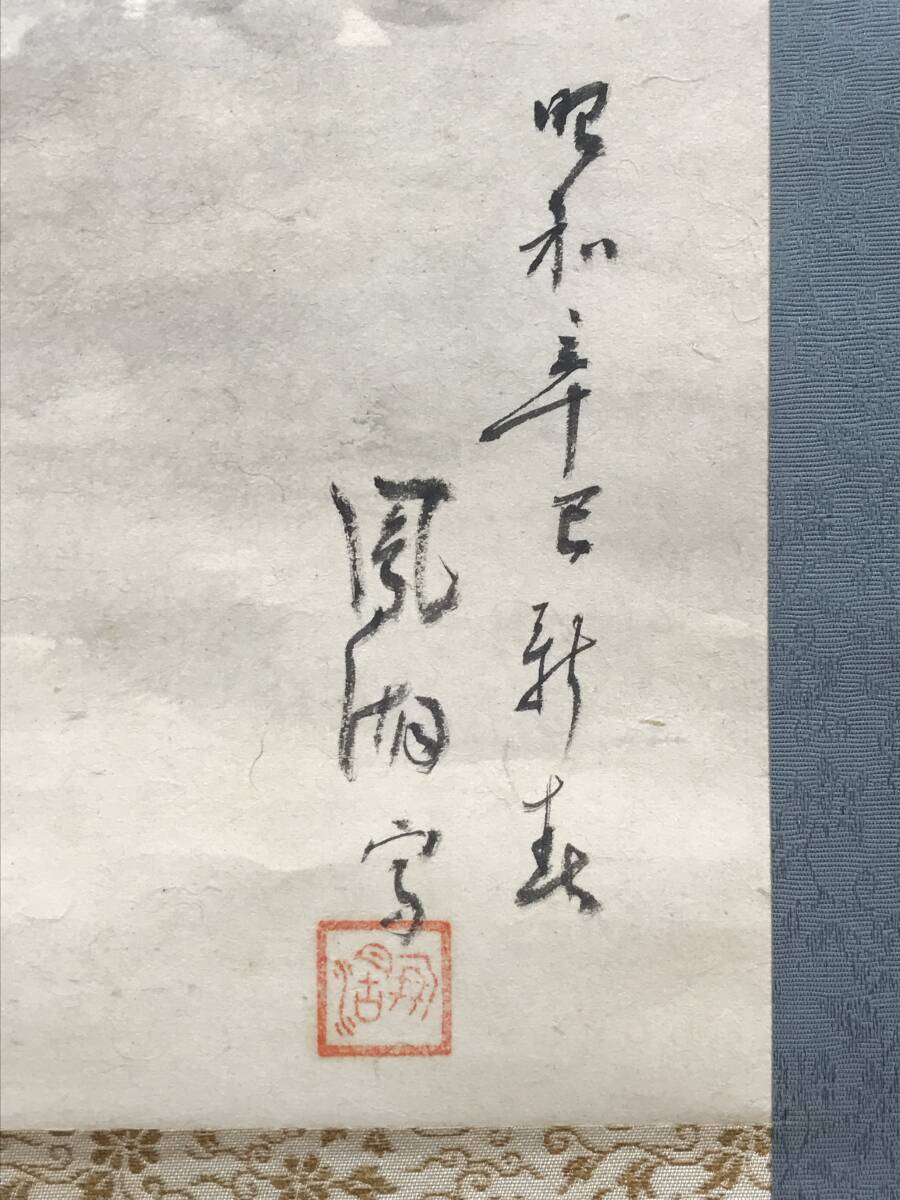 昭和辛巳新春
鳳湖写